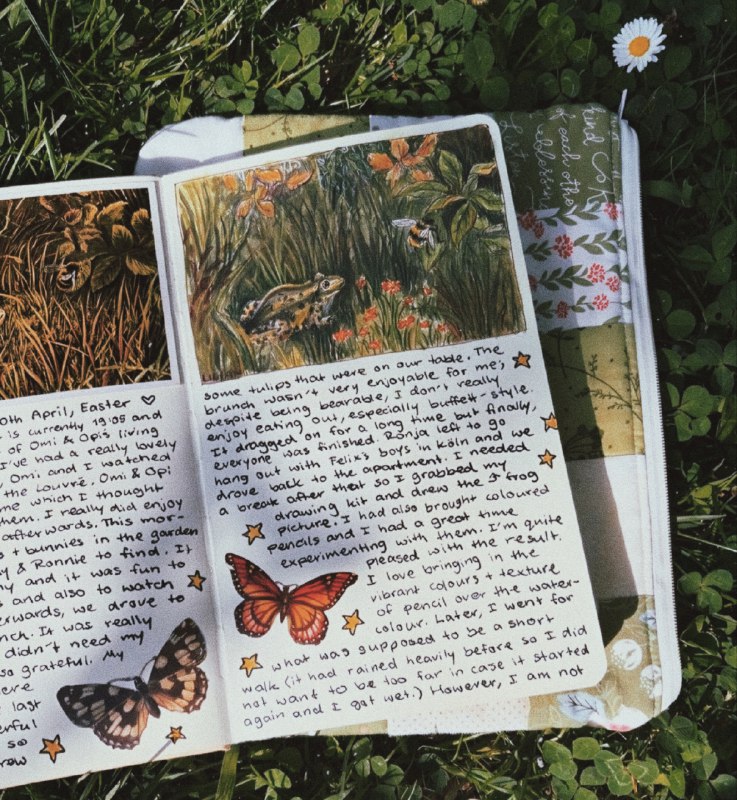 0th April, Easter ♡
is currently 19:05 and
of Omi & Opis living
I've had a really lovely
Omi and I watched
the Louvre. Omi & Opi
me which I thought
them. I really did enjoy
afterwards. This mor-
s + bunnies in the garden
y & Ronnie to find. It
ny and it was fun to
s and also to watch
erwards, we drove to
nch. It was really
didn't need my
so grateful. My
ere
last
erful
so
rew
some tulips that were on our table. The
brunch wasn't very enjoyable for me;
despite being bearable, I don't really
enjoy eating out, especially buffett-style.
It dragged on for a long time but finally,
everyone was finished. Ronja left to go
hang out with Felix's boys in Köln and we
drove back to the apartment. I needed
a break after that so I grabbed my
drawing kit and drew the ↑ frog
picture. I had also brought coloured
pencils and I had a great time
experimenting with them. I'm quite
pleased with the result.
I love bringing in the
vibrant colours + texture
of pencil over the water-
colour. Later, I went for
what was supposed to be a short
walk (it had rained heavily before so I did
not want to be too far in case it started
again and I got wet.) However, I am not
kind
of each other
Lost blossom